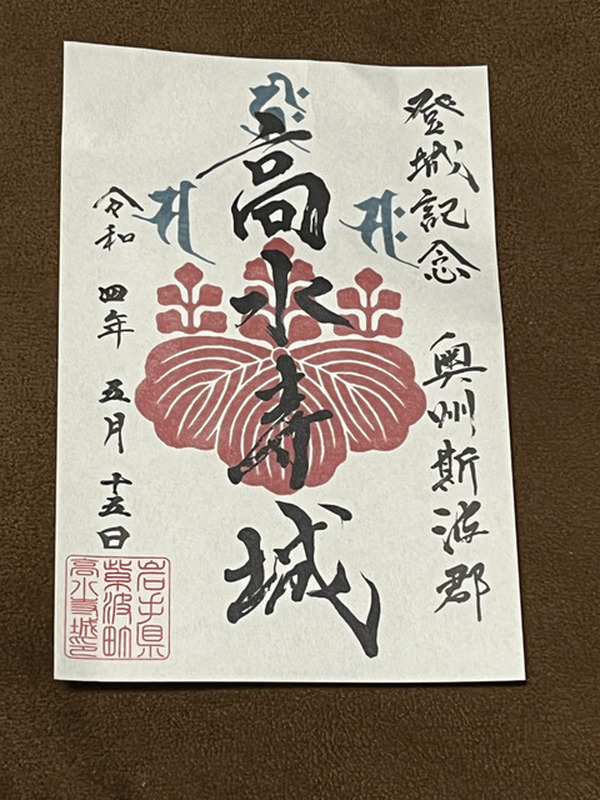 登城記念 奥州斯波郡
高水寺城
令和四年五月十五日
岩手県
紫波町
高水寺城印